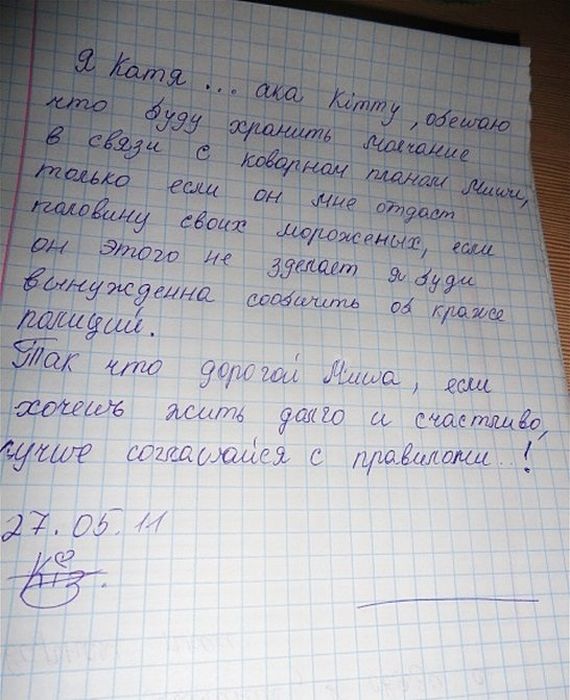 Я Катя ... ака Кітту, обешаю
что буду хранить молчание
в связи с коварном планом Миши,
только если он мне отдаст
половину своих мороженых, если
он этого не зделает я буди
вынужденна сообичить об краже
полиций.
Так что дорогой Миша, если
хочешь жить долго и счастливо,
лучше соглашайся с правилами..!
27.05.11